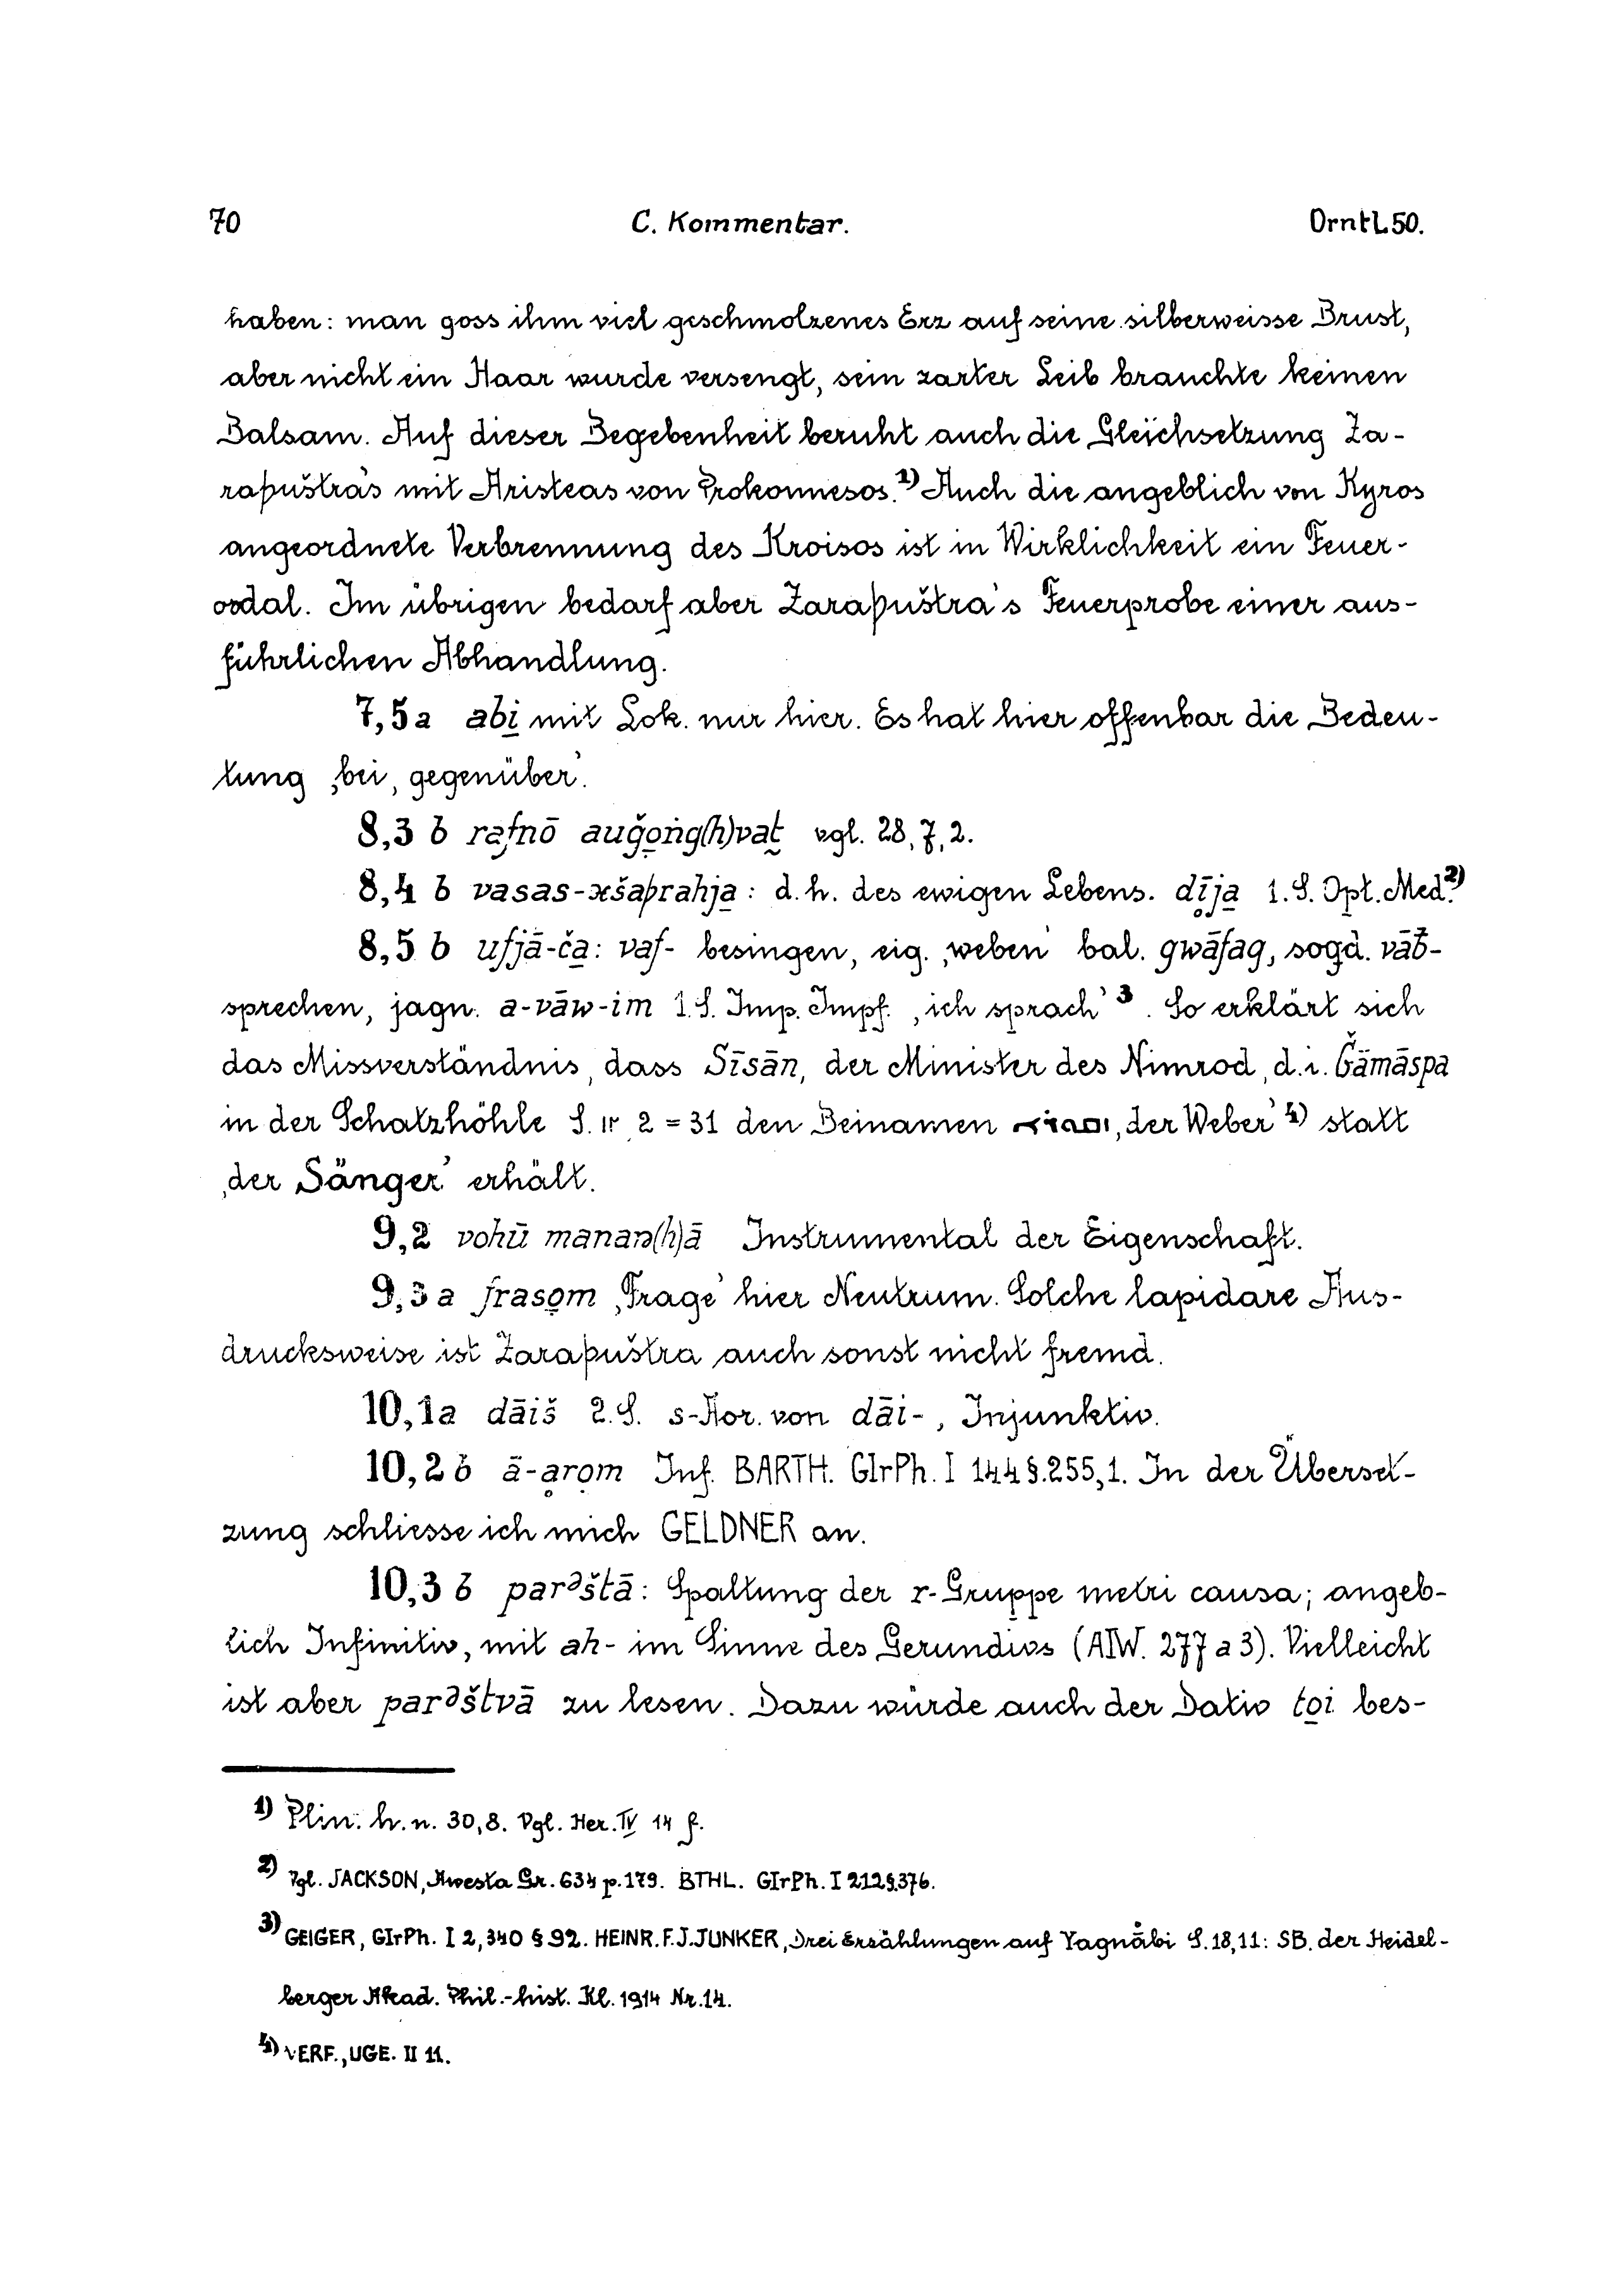 70 C. Kommentar. Orntl. 50.
haben: man goss ihm viel geschmolzenes Erz auf seine silberweisse Brust,
aber nicht ein Haar wurde versengt, sein zarter Leib brauchte keinen
Balsam. Auf dieser Begebenheit beruht auch die Gleichsetzung Za-
raþuštra's mit Aristeas von Prokonnesos.¹⁾ Auch die angeblich von Kyros
angeordnete Verbrennung des Kroisos ist in Wirklichkeit ein Feuer-
ordal. Im übrigen bedarf aber Zaraþuštra's Feuerprobe einer aus-
führlichen Abhandlung.
7,5a abi̱ mit Lok. nur hier. Es hat hier offenbar die Bedeu-
tung ‚bei, gegenüber’.
8,3 b rafnō auǧo̱ṅg(h)vat̰ vgl. 28,7,2.
8,4 b vasas-xšaþrahja̱: d.h. des ewigen Lebens. dī̥ja̱ 1. S. Opt. Med.²⁾
8,5 b ufjā-ča̱: vaf- besingen, eig. ‚weben’ bal. gwāfag, sogd. vāƀ-
sprechen, jagn. a-vāw-im 1. S. Imp. Impf. ‚ich sprach’ ³. So erklärt sich
das Missverständnis, dass Sīsān, der Minister des Nimrod, d.i. Ǧāmāspa
in der Schatzhöhle S. 2 = 31 den Beinamen ‚der Weber’ ⁴⁾ statt
‚der Sänger’ erhält.
9,2 vohū manaꬼ(h)ā Instrumental der Eigenschaft.
9,3 a fraso̱m ‚Frage’ hier Neutrum. Solche lapidare Aus-
drucksweise ist Zaraþuštra auch sonst nicht fremd.
10,1a dāiš 2. S. s-Aor. von dāi-, Injunktiv.
10,2 b ā-ḁrọm Inf. BARTH. GIrPh. I 144 §.255,1. In der Überset-
zung schliesse ich mich GELDNER an.
10,3 b parᵊštā: Spaltung der r-Gruppe metri causa; angeb-
lich Infinitiv, mit ah- im Sinne des Gerundivs (AIW. 277 a 3). Vielleicht
ist aber parᵊštvā zu lesen. Dazu würde auch der Dativ to̱i bes-
1) Plin. h. n. 30,8. Vgl. Her. IV 14 f.
2) Vgl. JACKSON, Awesta Gr. 634 p. 179. BTHL. GIrPh. I 212 §.376.
3) GEIGER, GIrPh. I 2, 340 § 92. HEINR. F. J. JUNKER, Drei Erzählungen auf Yagnåbi S. 18,11: SB. der Heidel-
berger Akad. Phil.-hist. Kl. 1914 Nr. 14.
4) VERF., UGE. II 11.